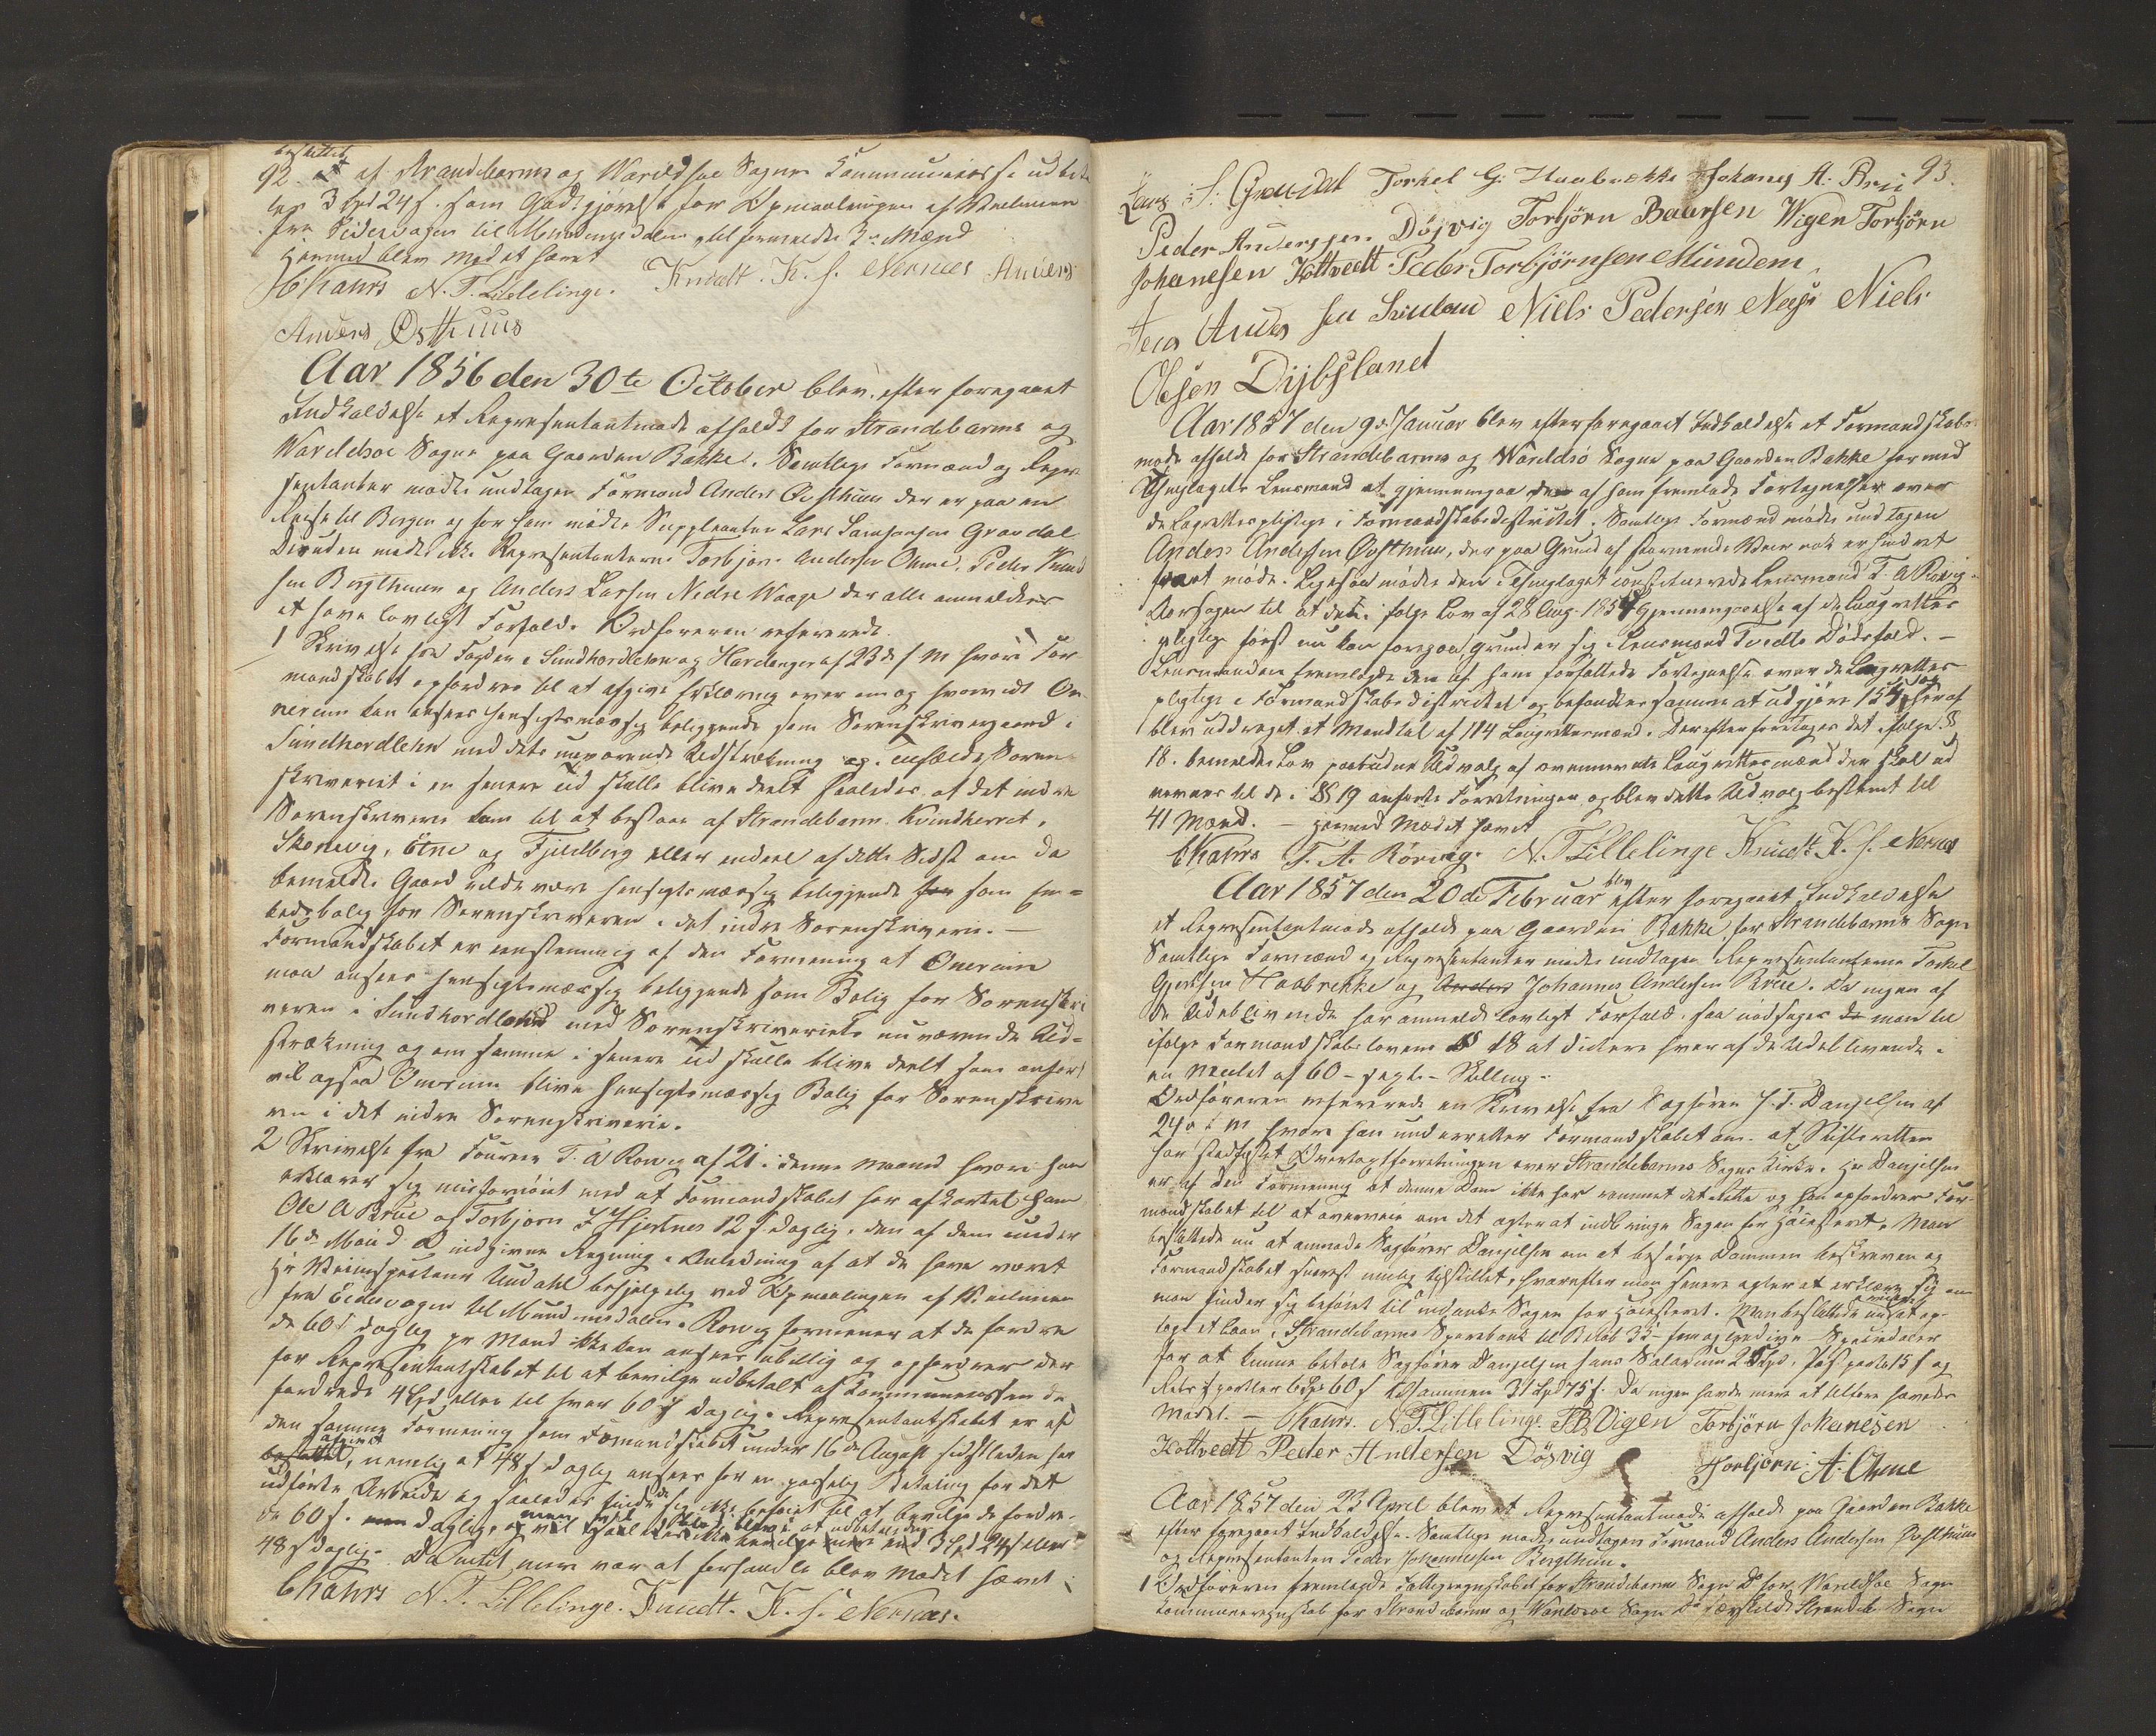 besluttet
92. at af Strandebarms og Warildsøe Sognes Communecasse udbeta
les 3 Spd 24 s. som Godtgjørelse for Opmaalingen af Veilinien
fra Eidesvagen til Mundemsdalen til formeldte 3de Mænd
Hermed blev Mødet hævet
CKahrs N. T. Lillelinge. Knudt. K. S. Nernæs Anders
Anders Østhuus
Aar 1856 den 30te October blev efter foregaaet
Indkaldelse et Representantmøde afholdt for Strandebarms og
Warildsøe Sogne paa Gaarden Bakke. Samtlige Formænd og Repre
sentanter mødte undtagen Formand Anders Østhuus der er paa en
Reise til Bergen og for ham mødte Suppleanten Lars Samsonsen Gravdal
Desuden mødte ikke Representanterne Torbjørn Andersen Omme, Peder
sen Bergthuun og Anders Larsen Nedre Waage der alle anmeldtes
at have lovligt Forfald. Ordføreren refererede
1 Skrivelse fra Fogden i Sundhordlehn og Hardanger af 23de s M hvori For
mandskabet opfordres til at afgive Erklæring over om og hvorvidt On
nereim kan ansees hensigtsmæssig beliggende som Sorenskrivergaard i
Sundhordlehn med dets nuværende Udstrækning og i Tilfælde Soren
skriveriet i en senere Tid skulle blive deelt saaledes at det indre
Sorenskriveri kom til at bestaae af Strandebarm Kvindherret,
Skonevig, Etne og Fjeldberg eller endeel af dette Sidste om da
bemeldte Gaard vilde være hensigtsmæssig beliggende som Em=
bedsbolig for Sorenskriveren i det indre Sorenskriveri. —
Formandskabet er eenstemmig af den Formening at Onereim
maa ansees hensigtsmæssig beliggende som Bolig for Sorenskri
veren i Sundhordlehn med Sorenskriveriets nuværende Ud=
strækning og om samme i senere Tid skulle blive deelt som anført
vil ogsaa Onereim blive hensigtsmæssig Bolig for Sorenskrive
ren i det indre Sorenskriveri.
2 Skrivelse fra Foureer T. A Rørvig af 21 i denne Maaned hvori han
erklærer sig misfornøiet med at Formandskabet har afkortet ham
Ole A Brue og Torbjørn Hjertnes 12 s. daglig i den af dem under
16de Mai d A indgivne Regning i Anledning af at de have været
Hr Veiinspecteur Undahl behjelpelig ved Opmaalingen af Veilinien
fra Eidesvagen til Mundemsdalen. Rørvig formener at de fordre
de 60 s daglig pr Mand ikke kan ansees ubillig og opfordrer der
for Representantskabet til at bevilge udbetalt af Communecassen de
fordrede 4 Spd eller til hver 60 s daglig. Representantskabet er af
den samme Formening som Formandskabet under 16de August sidstleden har
afgivet
besluttet, nemlig at 48 s daglig ansees for en passelig Betaling for det
udførte Arbeide og saaledes finder sig ikke beføiet til at bevilge de fordre
de 60 s. daglig, men vil bevilge at udbetales 3 Spd 24 s eller
48 s daglig. Da intet mere var at forhandle blev Mødet hævet
CKahrs N. T. Lillelinge. Knudt. K. S. Nernæs.
93.
Lars S. Gravdal Torkel G. Haabrekke Johanes A: Brue
Peder Anderssen Døsvig Torbjørn Baarsen Wigen Torbjørn
Johanesen Hottvedt Peder Torbjørnsen Mundem
Anders sen Niels Pedersen Nesse Niels
Olsen Dysland
Aar 1857 den 9de Januar blev efter foregaaet Indkaldelse et Formandskabs
møde afholdt for Strandebarms og Warildsø Sogne paa Gaarden Bakke for med
Thinglagets Lensmand at gjennemgaa den af ham fremlagde Fortegnelse over
de Laugrettespligtige i Formandskabsdistriktet. Samtlige Formænd mødte undtagen
Anders Andersen Østhuus, der paa Grund af stormende Veir nok er hindret
fra at møde. Ligesaa mødte den i Thinglaget constituerede Lensmand T. A Rørvig.
Aarsagen til at den i følge Lov af 28 Aug 1854 Gjennemgaaelse af de Laugrettes
pligtige først nu kan foregaa grunder sig i Lensmand Tvedts Dødsfald. —
Lensmanden fremlagde den af ham forfattede Fortegnelse over de Laugrettes
pligtige i Formandskabsdistriktet og befandtes samme at udgjøre 154, heraf
blev uddraget et Mandtal af 114 Laugrettesmænd. Derefter foretages det ifølge §
18. bemeldte Lov paabudne Udvalg af ovennævnte Laugrettesmænd der skal ud
nævnes til de i § 19 anførte Forretninger, og blev dette Udvalg bestemt til
41 Mænd. — Hermed Mødet hævet
CKahrs T. A. Rörvig. N. T Lillelinge Knudt. K. S. Nernæs
Aar 1857 den 20de Februar blev efter foregaaet Indkaldelse
et Representantmøde afholdt paa Gaarden Bakke, for Strandebarms Sogn
Samtlige Formænd og Representanter mødte undtagen Representanterne Torkel
Gjertsen Haabrekke og Johannes Andersen Brue. Da ingen af
de Udeblivende har anmeldt lovligt Forfald, saa nødsages man til
ifølge Formandskabslovens § 18 at dictere hver af de Udeblivende
en Mulct af 60 – sexti – Skilling.
Ordføreren refererede en Skrivelse fra Sagfører J. F. Danjelsen af
24de s M hvori han underretter Formandskabet om at Stiftsretten
har stadfæstet Overtaxtforretningen over Strandebarms Sogns Kirke. Hr Danjelsen
er af den Formening at denne Dom ikke har rammet det Rette og han opfordrer For
mandskabet til at overveie om det agter at indbringe Sagen for Høiesteret. Man
besluttede nu at anmode Sagfører Danjelsen om at besørge Dommen beskreven og
Formandskabet snarest mulig tilstillet, hvorefter man senere agter at erklære sig om
man finder sig beføiet til indanke Sagen for Høiesteret. Man besluttede at op
tage et Laan i Strandebarms Sparebank til Beløb 35 – fem og tredive – Speciedaler
for at kunne betale Sagfører Danjelsen hans Salarium 25 Spd, porto 15 s og
Retssportler 6 Spd 60 s tilsammen 31 Spd 75 s. Da ingen havde mere at tilføre hævedes
Mødet. — Kahrs. N. T. Lillelinge TB Vigen Torbjørn Johanesen
Hottvedt Peder Andersen Døsvig Torbjørn: A: Omme
Aar 1857 den 23 April blev et Representantmøde afholdt paa Gaarden Bakke
efter foregaaet Indkaldelse. Samtlige mødte undtagen Formand Anders Andersen Østhuus
og Representanten Peder Johannessen Bergthun.
1 Ordføreren fremlagde Fattigregnskabet for Strandebarms Sogn Do for Warildsøe Sogn
Communeregnskab for Strandebarms og Warildsøe Sogn Do særskildt Strandeb. Sogn